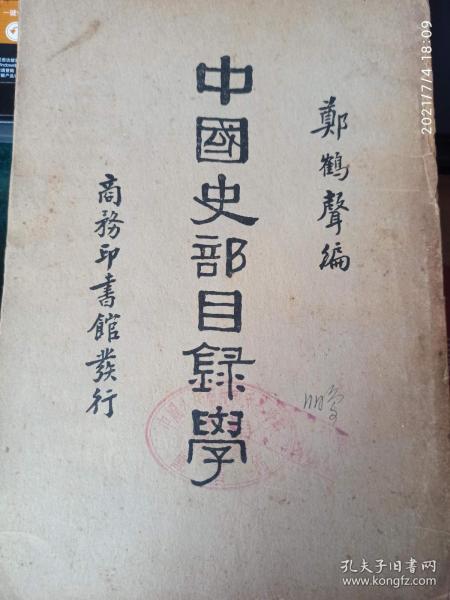 鄭鶴聲編
中國史部目録學
商務印書館發行
2021/7/4 18:09
孔夫子旧书网
www.kongfz.com